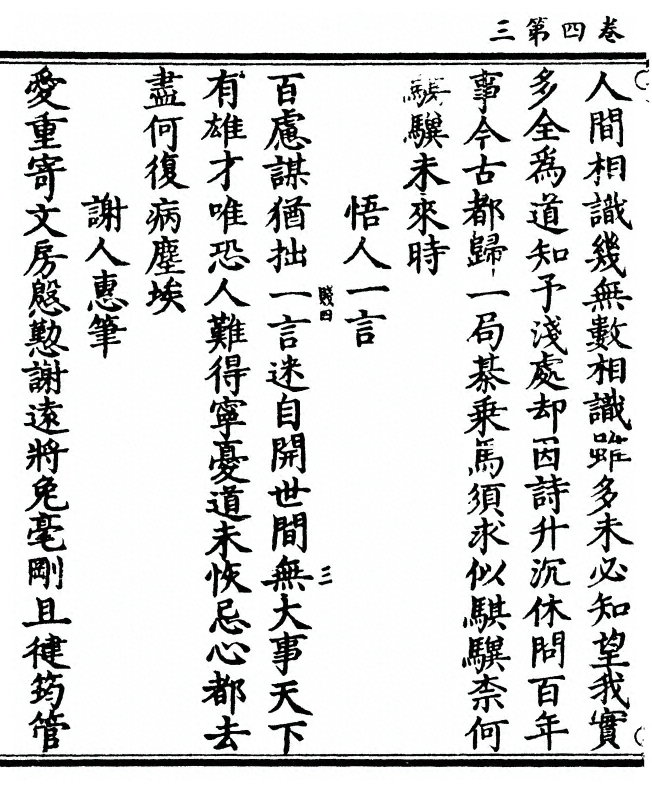 卷四第三
人間相識幾無數相識雖多未必知望我實
多全爲道知予淺處却因詩升沉休問百年
事今古都歸一局棊乗馬須求似騏驥柰何
騏驥未來時
悟人一言
百慮謀猶拙一言迷自開世間無大事天下
有雄才唯恐人難得寧憂道未恢忌心都去
盡何復病塵埃
謝人惠筆
愛重寄文房慇懃謝遠將兔毫剛且健筠管